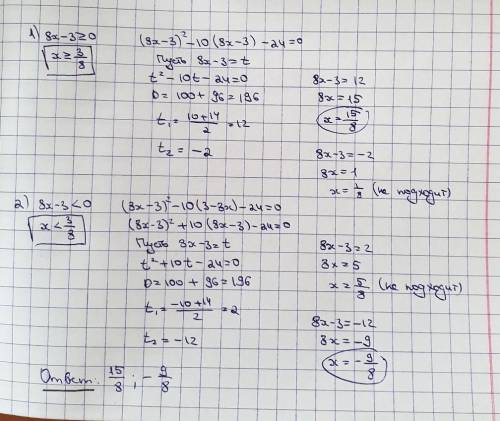 1) 8x-3≥0 (8x-3)²-10(8x-3)-24=0
x≥3/8
Пусть 8x-3=t
t²-10t-24=0
D=100+96=196
t₁=(10+14)/2=12
t₂=-2
8x-3=12
8x=15
x=15/8
8x-3=-2
8x=1
x=1/8 (не подходит)
2) 8x-3<0 (8x-3)²-10(3-8x)-24=0
x<3/8
(8x-3)²+10(8x-3)-24=0
Пусть 8x-3=t
t²+10t-24=0
D=100+96=196
t₁=(-10+14)/2=2
t₂=-12
8x-3=2
8x=5
x=5/8 (не подходит)
8x-3=-12
8x=-9
x=-9/8
Ответ: 15/8; -9/8